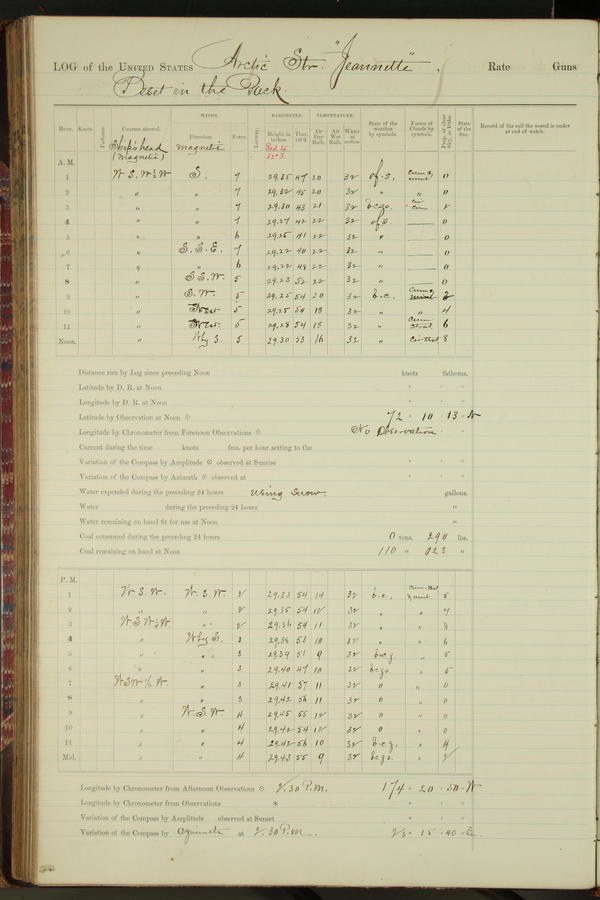 LOG of the United States Arctic Str "Jeannette". Rate Guns
Beset in the Pack.
Hour. Knots. Fathoms. Courses steered. WINDS. Direction. Force. Leeway. BAROMETER. Height in inches. Ther. att'd. TEMPERATURE. Air Dry Bulb. Air Wet Bulb. Water at surface. State of the weather by symbols. Forms of Clouds by symbols. Prop. of clear sky, in tenths. State of the Sea. Record of the sail the vessel is under at end of watch.
Ship's head (magnetic) magnetic
A. M.
1 S. 7 29.35 47 20 32 0
2 " " 7 29.32 45 20 32 " " 0
3 " " 7 29.30 43 21 32 2
4 " " 7 29.27 42 22 32 0
5 " " 6 29.25 41 22 32 " 0
6 " S.S.E. 7 29.22 40 22 32 " 0
7 " " 6 29.22 48 22 32 " 0
8 " S.S.W. 5 29.23 52 22 32 " 0
9 " S.W. 5 29.25 54 20 32 b.c. 2
10 " 5 29.25 54 18 32 " " 4
11 " 5 29.28 54 18 32 " 6
Noon. " W by S. 5 29.30 53 16 32 " 8
Distance run by Log since preceding Noon knots fathoms.
Latitude by D. R. at Noon
Longitude by D. R. at Noon
Latitude by Observation at Noon 72 ° 10 ' 13 " N
Longitude by Chronometer from Forenoon Observations No Observation
Current during the time knots fms. per hour setting to the
Variation of the Compass by Amplitude observed at Sunrise
Variation of the Compass by Azimuth observed at
Water expended during the preceding 24 hours Using Snow. gallons.
Water during the preceding 24 hours "
Water remaining on hand fit for use at Noon "
Coal consumed during the preceding 24 hours 0 tons. 290 lbs.
Coal remaining on hand at Noon 110 " 023 "
P. M.
1 W.S.W. W.S.W 2 29.33 54 14 32 b.c. 5
2 " " 2 29.35 54 12 32 " " 7
3 " 2 29.36 54 11 32 " " 8
4 " W by S. 3 29.38 53 10 32 " " 6
5 " " 3 29.39 51 9 32 b.c.z " 5
6 " " 3 29.40 47 10 32 " 5
7 " 3 29.41 57 11 32 " " 0
8 " " 3 29.42 56 11 32 " " 0
9 " W.S.W. 4 29.45 55 12 32 " " 0
10 " " 4 29.42 54 12 32 " " 0
11 " " 4 29.42 56 10 32 b.c.z. " 4
Mid. " " 4 29.43 55 9 32 " 2
Longitude by Chronometer from Afternoon Observations 2.30 P.M. 174 ° 20 ' 50 " W
Longitude by Chronometer from Observations *
Variation of the Compass by Amplitude observed at Sunset
Variation of the Compass by Azimuth at 2.30 P.M. 23 ° 15 ' 40 " E.